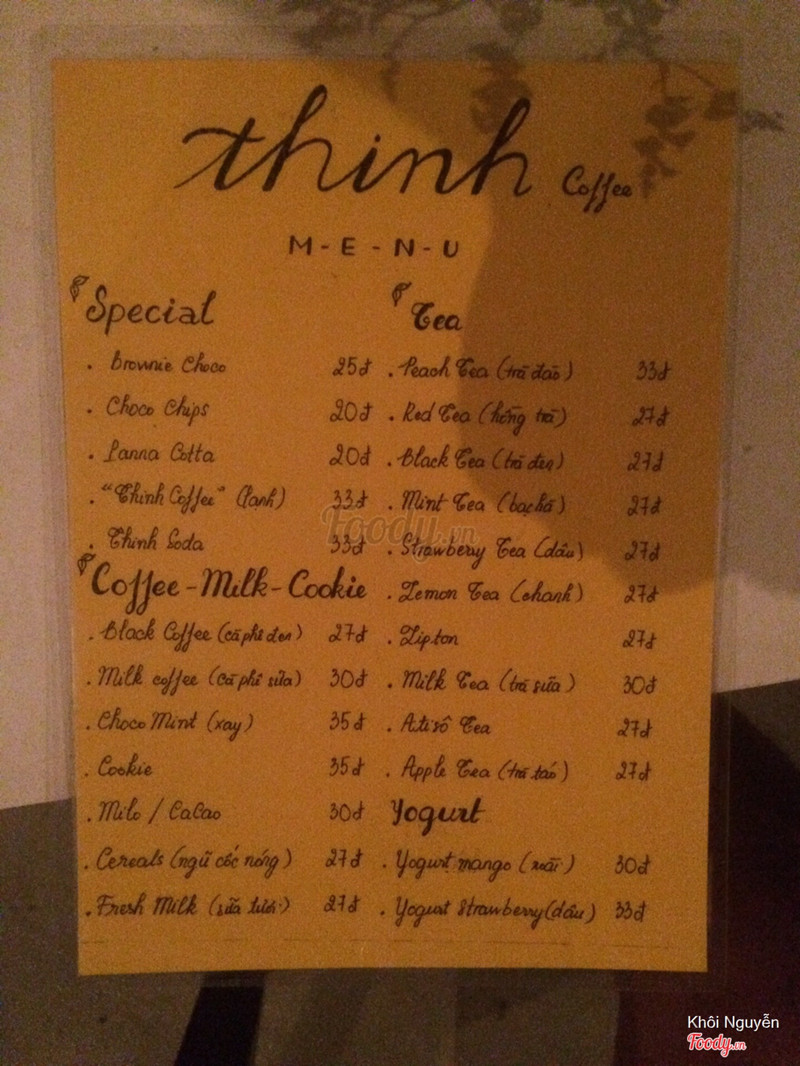 thinh Coffee
M-E-N-U
Special
. Brownie Choco 25đ
. Choco Chips 20đ
. Panna Cotta 20đ
. "Thinh Coffee" (lạnh) 33đ
. Thinh Soda 33đ
Coffee-Milk-Cookie
. Black Coffee (cà phê đen) 27đ
. Milk coffee (cà phê sữa) 30đ
. Choco Mint (xay) 35đ
. Cookie 35đ
. Milo / CaCao 30đ
. Cereals (ngũ cốc nóng) 27đ
. Fresh Milk (sữa tươi) 27đ
Tea
. Peach Tea (trà đào) 33đ
. Red Tea (hồng trà) 27đ
. Black Tea (trà đen) 27đ
. Mint Tea (bạc hà) 27đ
. Strawberry Tea (dâu) 27đ
. Lemon Tea (chanh) 27đ
. Lipton 27đ
. Milk Tea (trà sữa) 30đ
. Atisô Tea 27đ
. Apple Tea (trà táo) 27đ
Yogurt
. Yogurt mango (xoài) 30đ
. Yogurt Strawberry (dâu) 33đ
Foody.vn
Khôi Nguyễn
Foody.vn